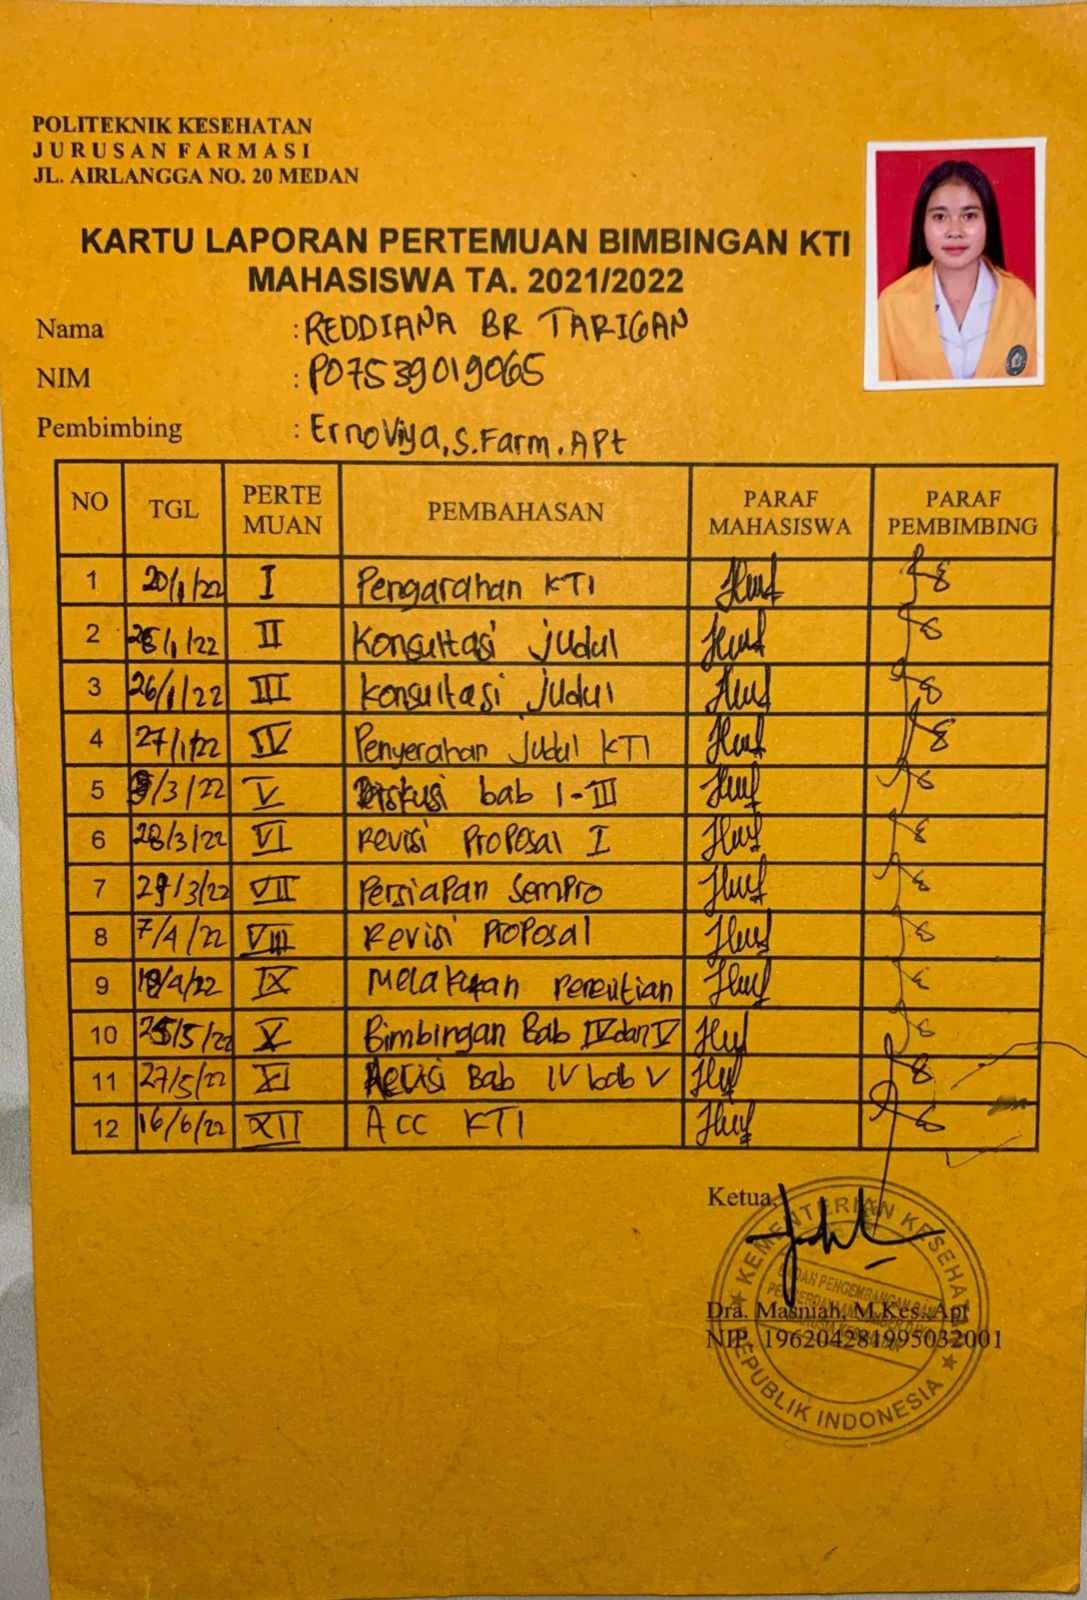 POLITEKNIK KESEHATAN
JURUSAN FARMASI
JL. AIRLANGGA NO. 20 MEDAN
KARTU LAPORAN PERTEMUAN BIMBINGAN KTI
MAHASISWA TA. 2021/2022
Nama : REDDIANA BR TARIGAN
NIM : P07539019065
Pembimbing : Ernoviya, S.Farm. APt
NO TGL PERTE MUAN PEMBAHASAN PARAF MAHASISWA PARAF PEMBIMBING
1 20/1/22 I Pengarahan KTI
2 /1/22 II Konsultasi judul
3 26/1/22 III Konsultasi judul
4 27/1/22 IV Penyerahan judul KTI
5 /3/22 V Diskusi bab I-III
6 28/3/22 VI Revisi Proposal I
7 29/3/22 VII Persiapan Sempro
8 7/4/22 VIII Revisi Proposal
9 /4/22 IX Melakukan Penelitian
10 25/5/22 X Bimbingan Bab IV dan V
11 27/5/22 XI Revisi Bab IV bab V
12 16/6/22 XII Acc KTI
Ketua,
KEMENTERIAN KESEHATAN
REPUBLIK INDONESIA
BADAN PENGEMBANGAN DAN
Dra. Masniah, M.Kes., Apt
NIP. 196204281995032001